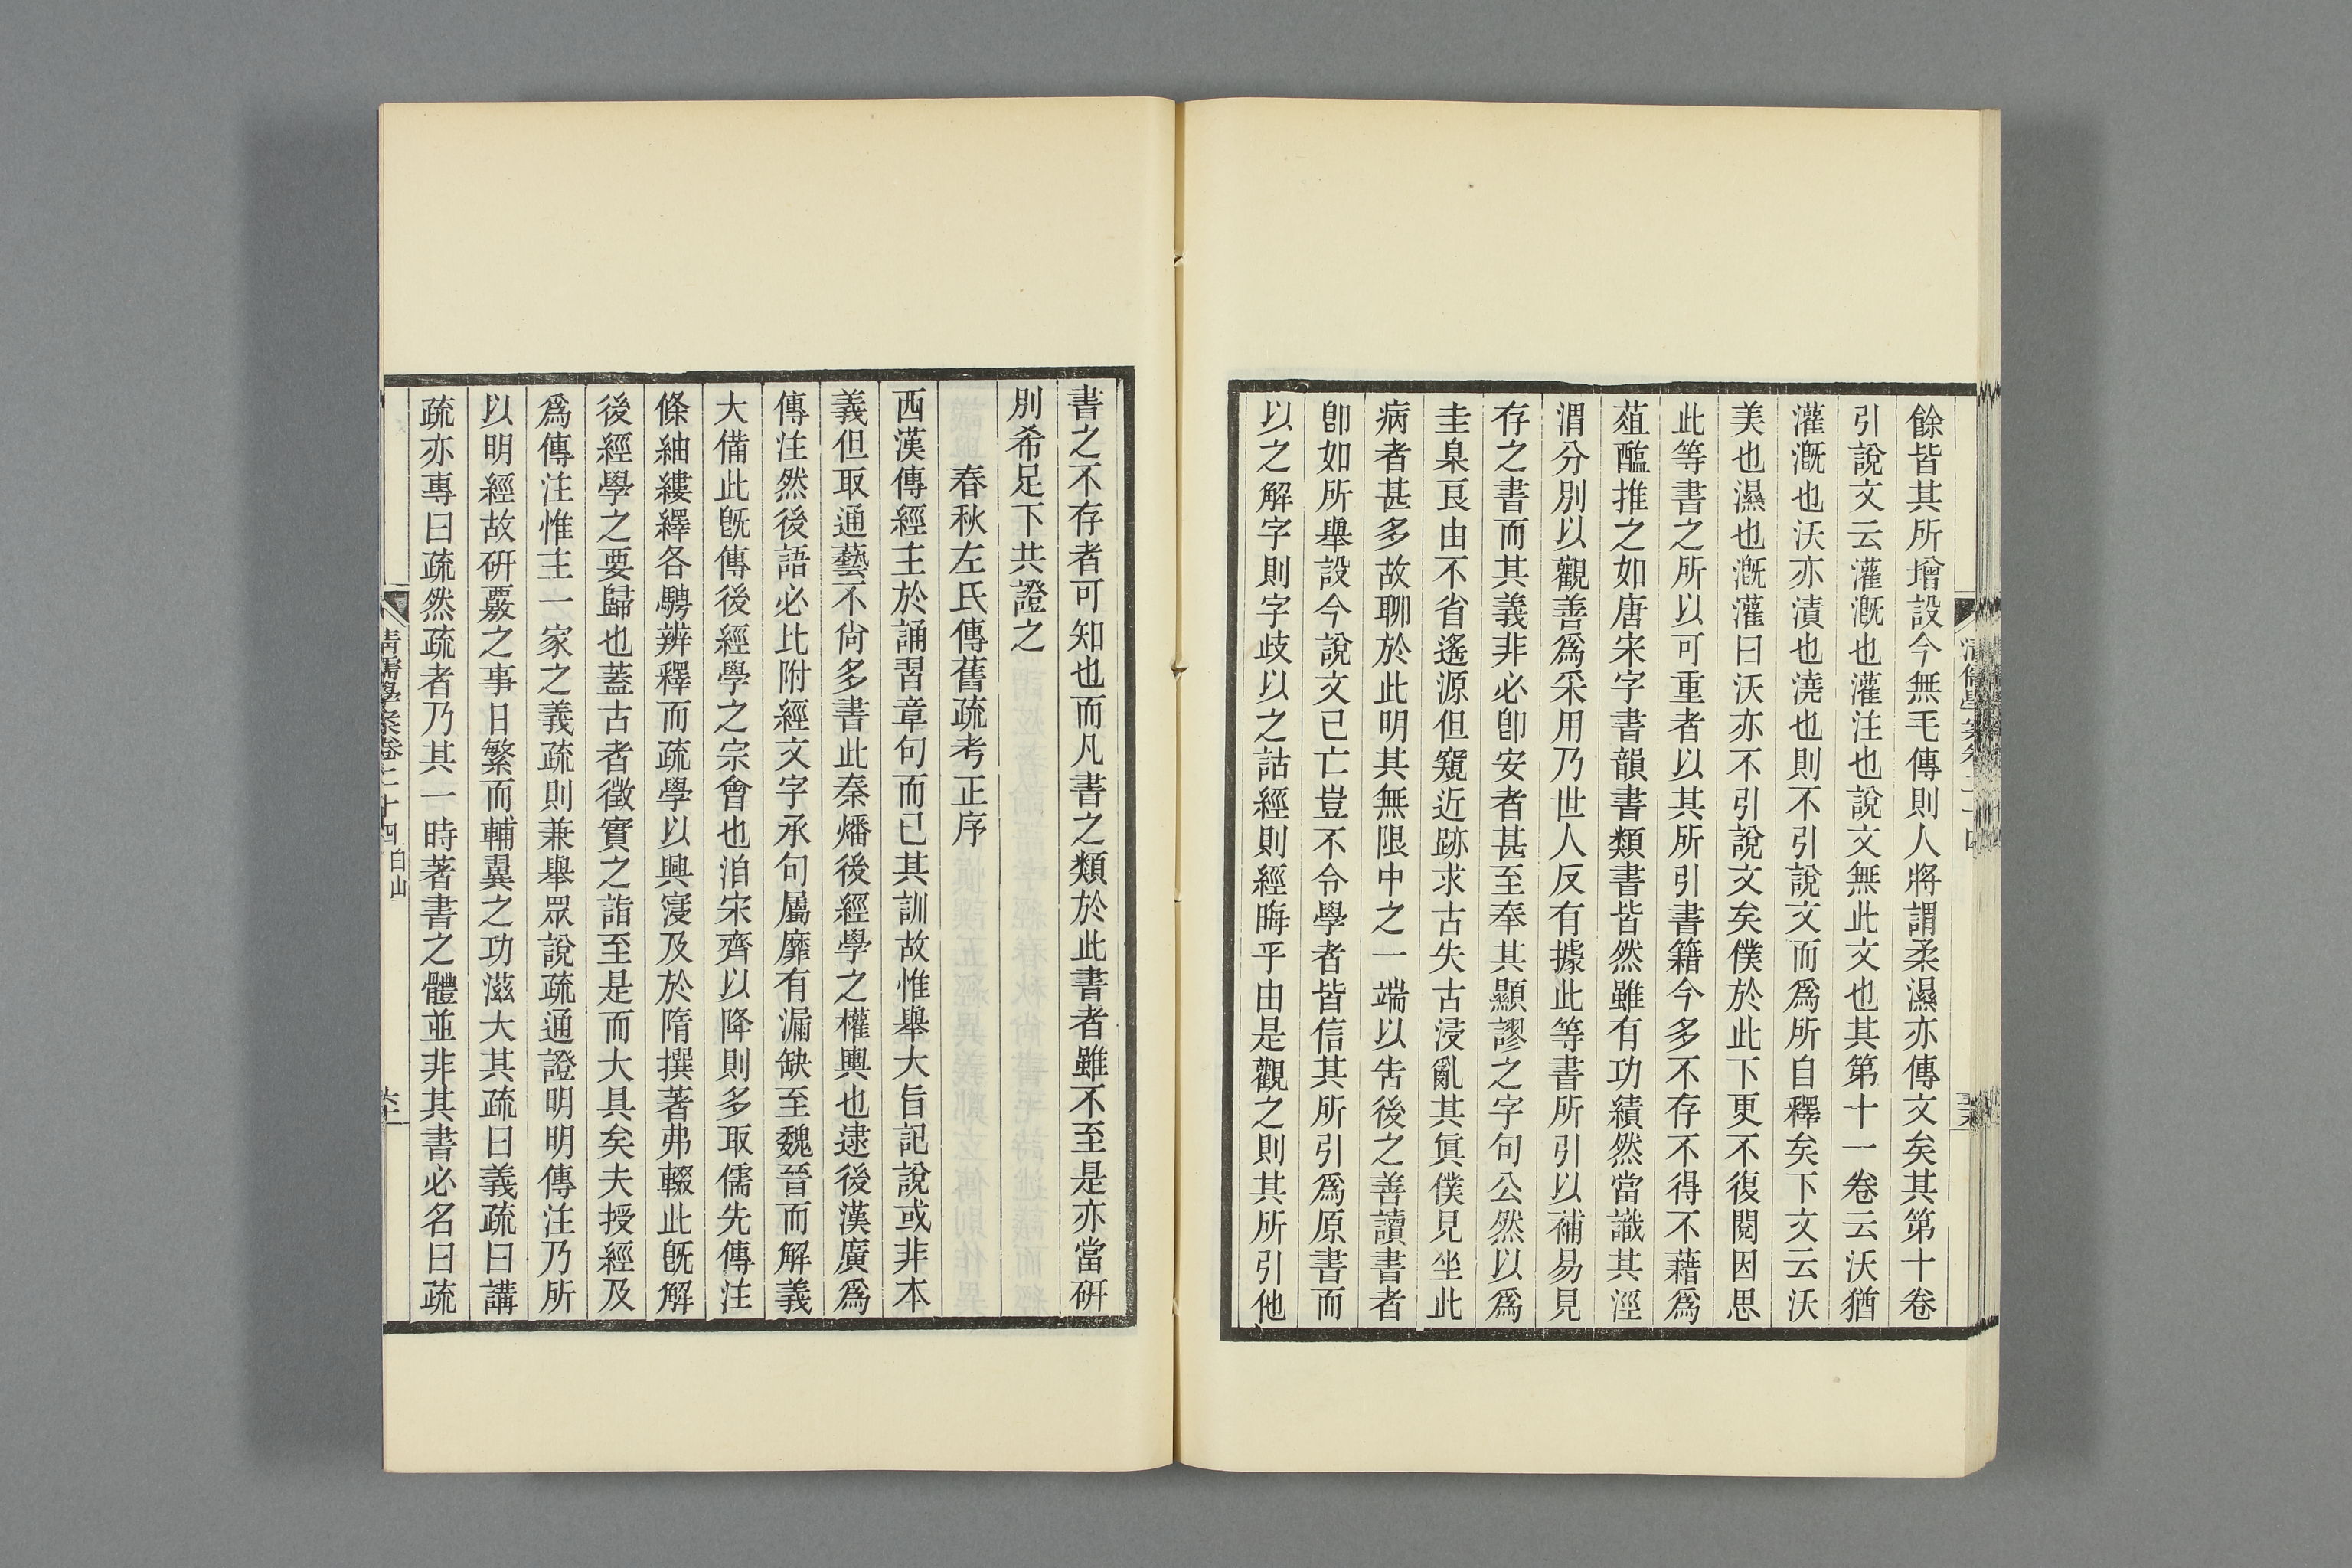 餘皆其所增設今無毛傳則人將謂柔濕亦傳文矣其第十卷
引說文云灌漑也灌注也說文無此文也其第十一卷云沃猶
灌漑也沃亦漬也澆也則不引說文而爲所自釋矣下文云沃
美也濕也漑灌曰沃亦不引說文矣僕於此下更不復閱因思
此等書之所以可重者以其所引書籍今多不存不得不藉爲
葅醢推之如唐宋字書韻書類書皆然雖有功績然當識其涇
渭分別以觀善爲采用乃世人反有據此等書所引以補易見
存之書而其義非必卽安者甚至奉其顯謬之字句公然以爲
圭臬良由不省遙源但窺近跡求古失古浸亂其眞僕見坐此
病者甚多故聊於此明其無限中之一端以吿後之善讀書者
卽如所舉設今說文已亡豈不令學者皆信其所引爲原書而
以之解字則字歧以之詁經則經晦乎由是觀之則其所引他
書之不存者可知也而凡書之類於此書者雖不至是亦當硏
別希足下共證之
春秋左氏傳舊疏考正序
西漢傳經主於誦習章句而已其訓故惟舉大旨記說或非本
義但取通藝不尙多書此秦燔後經學之權輿也逮後漢廣爲
傳注然後語必比附經文字承句屬靡有漏缺至魏晉而解義
大備此旣傳後經學之宗會也洎宋齊以降則多取儒先傳注
條紬縷繹各騁辨釋而疏學以興寖及於隋撰著弗輟此旣解
後經學之要歸也蓋古者徵實之詣至是而大具矣夫授經及
爲傳注惟主一家之義疏則兼舉眾說疏通證明明傳注乃所
以明經故硏覈之事日繁而輔翼之功滋大其疏曰義疏曰講
疏亦專曰疏然疏者乃其一時著書之體並非其書必名曰疏
清儒學案卷二十四 白山